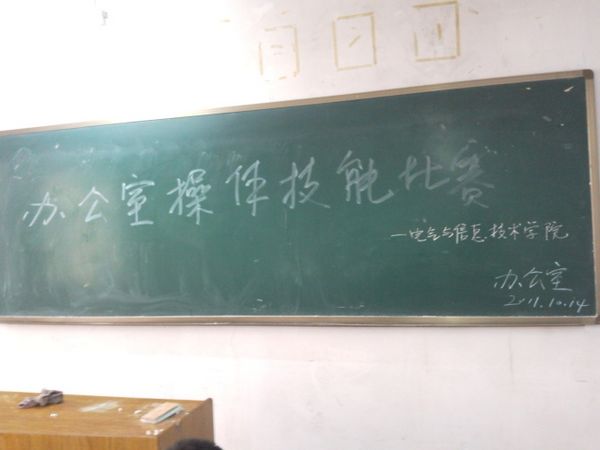 办公室操作技能比赛
—电气与信息技术学院
办公室
2011.10.14